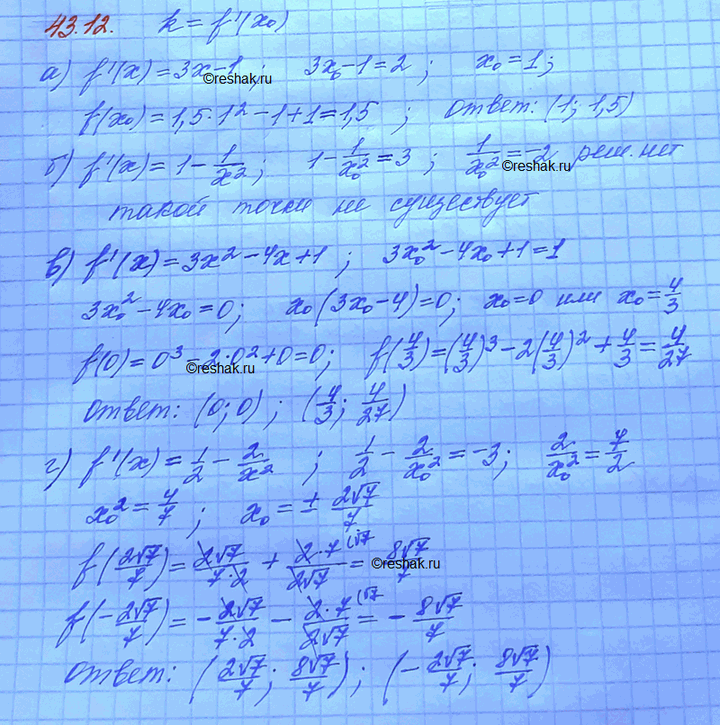 43.12. k = f'(x₀)
а) f'(x) = 3x-1 ; 3x₀-1 = 2 ; x₀ = 1 ;
©reshak.ru
f(x₀) = 1,5·1² - 1 + 1 = 1,5 ; ответ: (1; 1,5)
б) f'(x) = 1 - 1/x² ; 1 - 1/x₀² = 3 ; 1/x₀² = -2 реш. нет
©reshak.ru
такой точки не существует
в) f'(x) = 3x² - 4x + 1 ; 3x₀² - 4x₀ + 1 = 1
3x₀² - 4x₀ = 0 ; x₀(3x₀-4) = 0 ; x₀ = 0 или x₀ = 4/3
f(0) = 0³ - 2·0² + 0 = 0 ; f(4/3) = (4/3)³ - 2(4/3)² + 4/3 = 4/27
©reshak.ru
ответ: (0; 0) ; (4/3; 4/27)
г) f'(x) = 1/2 - 2/x² ; 1/2 - 2/x₀² = -3 ; 2/x₀² = 7/2
x₀² = 4/7 ; x₀ = ± 2√7/7
f(2√7/7) = 2√7/7·2 + 2·7(√7/2√7 = 8√7/7
©reshak.ru
f(-2√7/7) = - 2√7/7·2 - 2·7(√7/2√7 = - 8√7/7
ответ: (2√7/7; 8√7/7) ; (-2√7/7; 8√7/7)